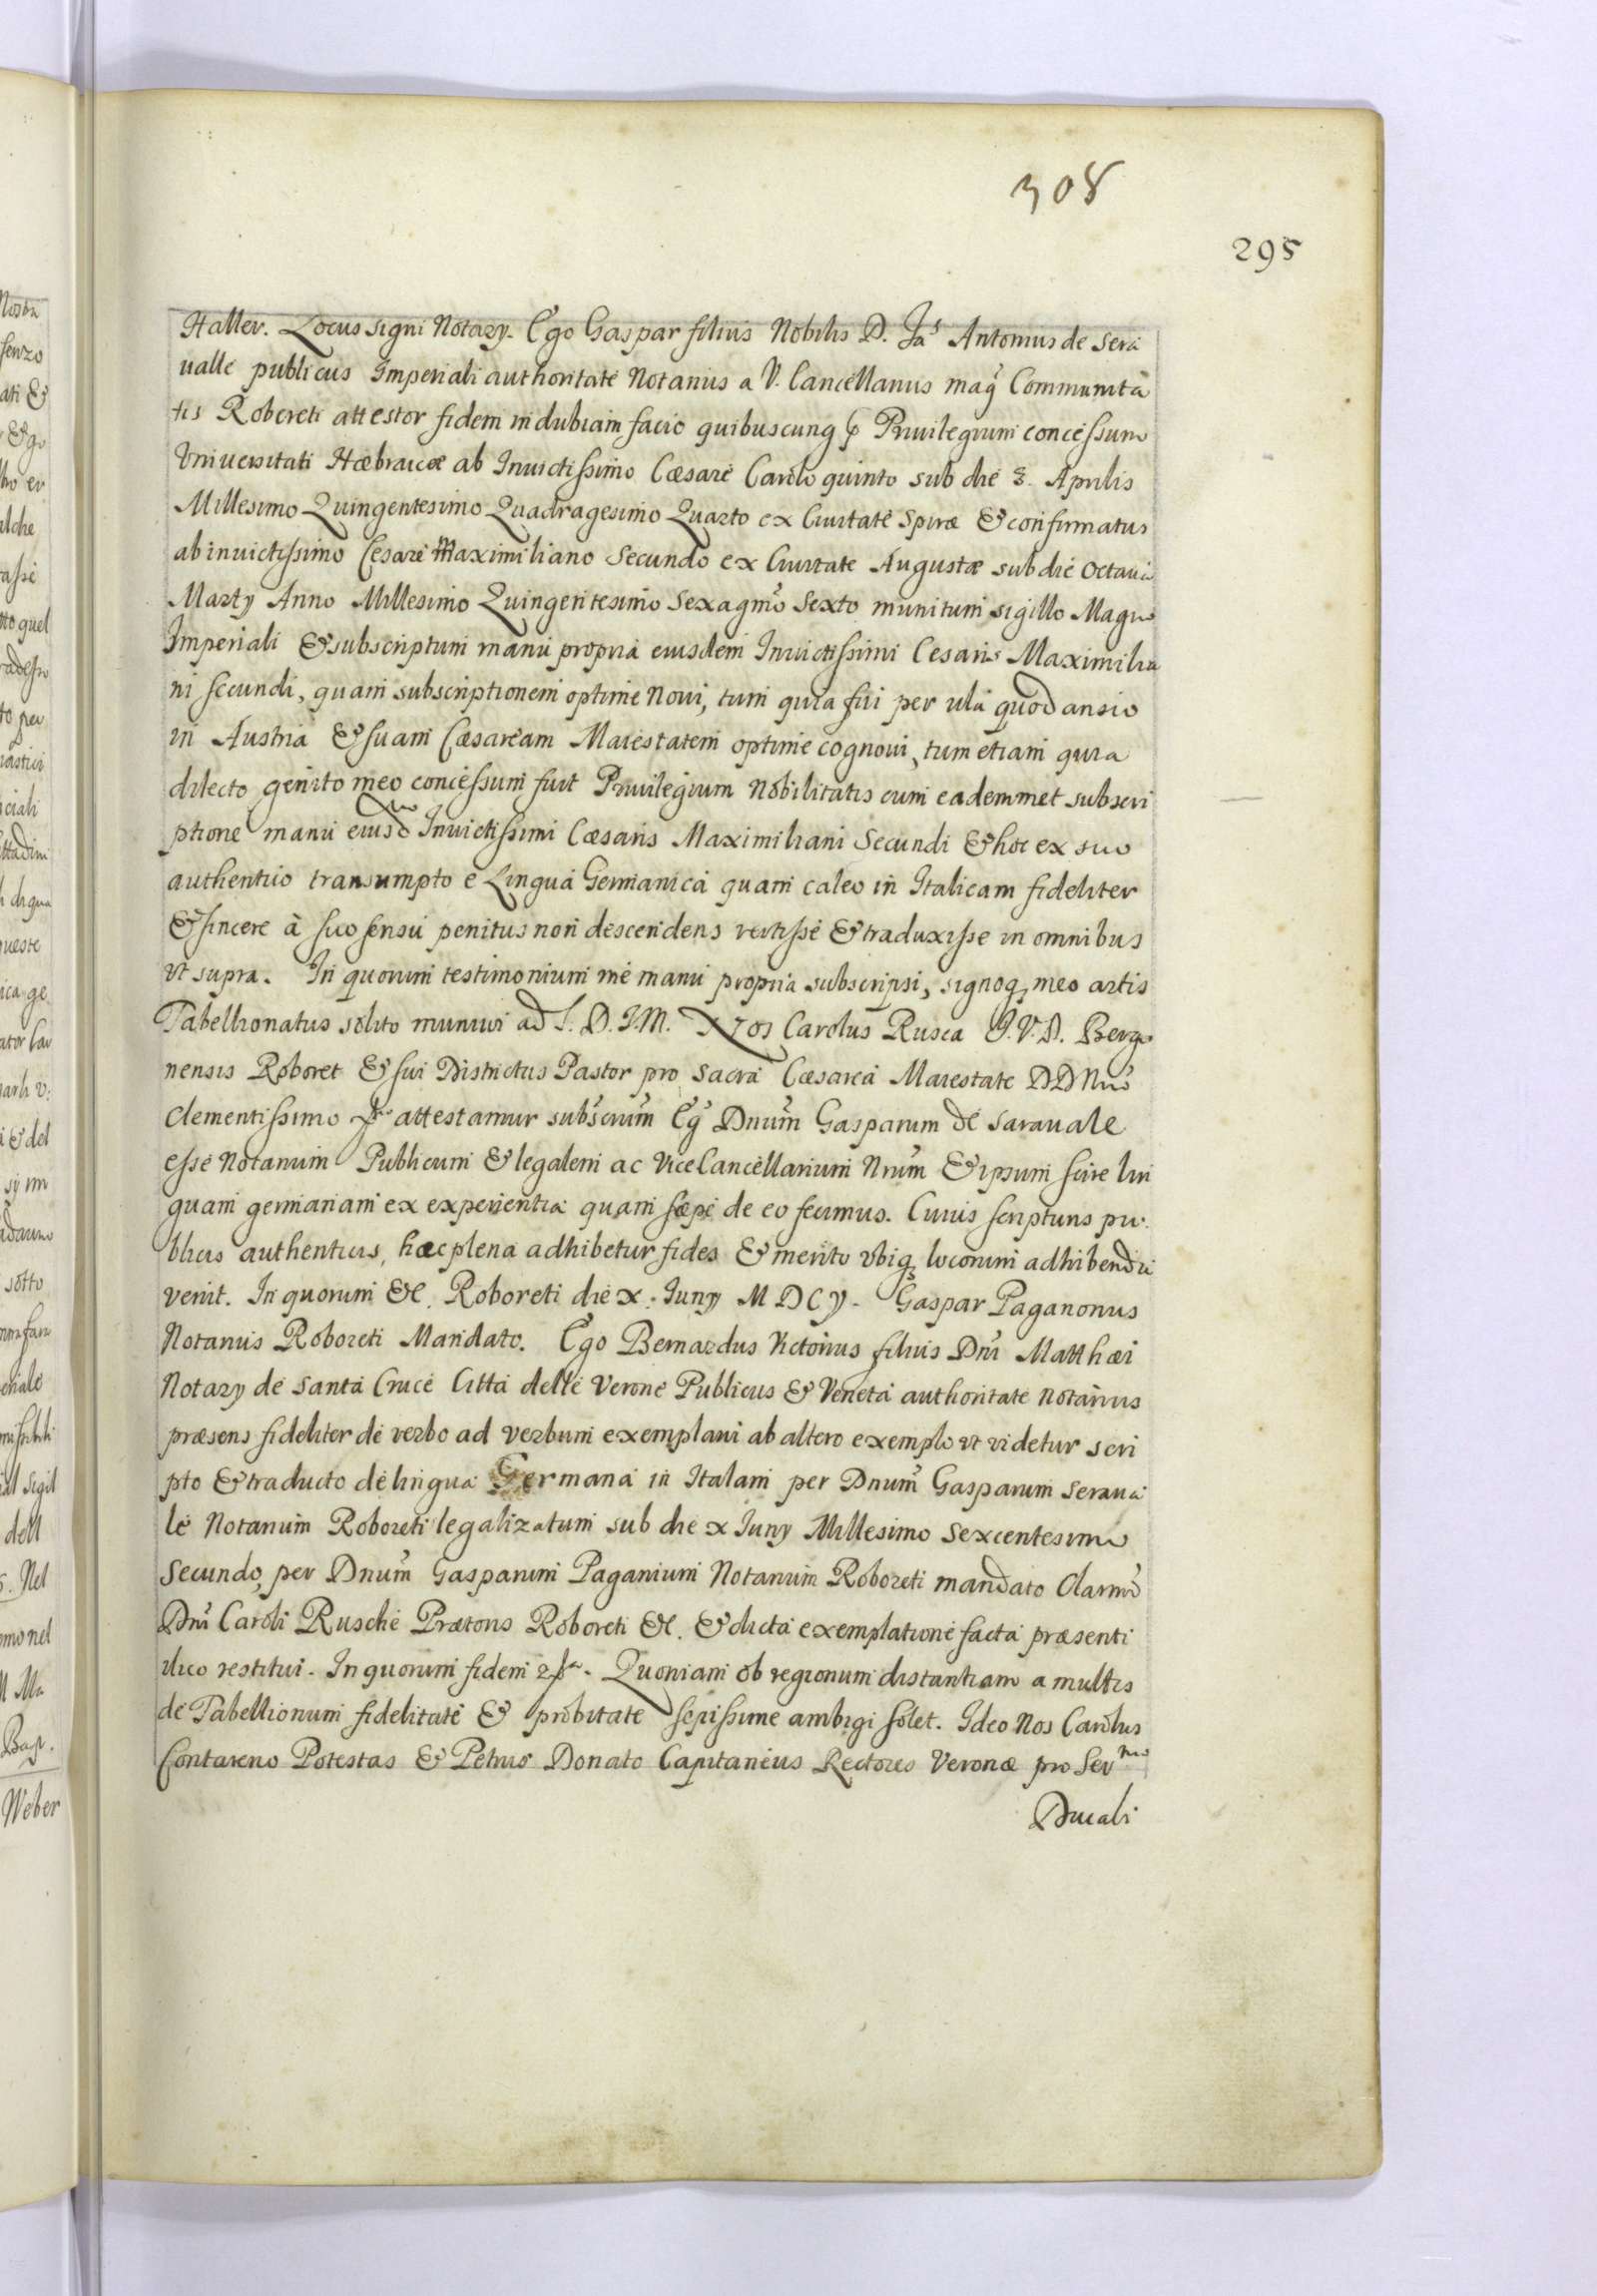 308
295
Haller. Locus signi Notarÿ. Ego Gaspar filius Nobilis D. Jaˢ Antonius de Sera
ualle publicus Imperiali authoritate Notarius a V. Cancellarius mag. Communita
tis Robereti attestor fidem indubiam facio quibuscunq Priuilegium concessum
Vniuersitati Hæbraicæ ab Inuictissimo Cæsare Carolo quinto sub die 3. Aprilis
Millesimo Quingentesimo Quadragesimo Quarto ex Ciuitate Spiræ & confirmatus
ab inuictissimo Cesare Maximiliano Secundo ex Ciuitate Augustæ sub die Octaua
Martÿ Anno Millesimo Quingentesimo Sexagmo Sexto munitum sigillo Magno
Imperiali & subscriptum manu propria eiusdem Inuictissimi Cesaris Maximilia
ni secundi, quam subscriptionem optime Noui, tum quia fui per ula quod ansio
in Austria & suam Cæsaream Maiestatem optime cognoui, tum etiam quia
dilecto genito meo concessum fuit Priuilegium Nobilitatis cum eademmet subscri
ptione manu eiusd Inuictissimi Cæsaris Maximiliani Secundi & hoc ex suo
authentico transumpto e Lingua Germanica quam caleo in Italicam fideliter
& sincere à suo sensu penitus non descendens vertisse & traduxisse in omnibus
vt supra. In quorum testimonium me manu propria subscripsi, signoq meo artis
Tabellionatus solito muniui ad L. D. I. M. Nos Carolus Rusca I. V. D. Berga
nensis Roboret & sui Districtus Pastor pro Sacra Cæsarea Maiestate DD Nro
Clementissimo attestamur subscrium Eg Dnum Gasparum de Sarauale
esse Notarium Publicum & legalem ac ViceCancellarium Nrum & ipsum scire lin
guam germanam ex experientia quam sæpe de eo fecimus. Cuius scripturis pu-
blicis authenticis, hæc plena adhibetur fides & merito vbiq locorum adhibenda
venit. In quorum &c. Roboreti die x. Iunÿ M D C ÿ. Gaspar Paganonus
Notarius Roboreti Mandato. Ego Bernardus Victorius filius Dni Matthæi
Notarÿ de Santa Cruce Citta delle Verone Publicus & Veneta authoritate Notarius
præsens fideliter de verbo ad verbum exemplaui ab altero exemplo vt videtur scri
pto & traducto de lingua Germana in Italam per Dnum Gasparum Seraua
le Notarium Roboreti legalizatum sub die x Iunÿ Millesimo Sexcentesimo
Secundo, per Dnum Gasparum Paganium Notarium Roboreti mandato Clarmo
Dni Caroli Rusche Prætoris Roboreti &c. & dicta exemplatione facta præsenti
ilico restitui. In quorum fidem Quoniam ob regionum distantiam a multis
de Tabellionum fidelitate & probitate sepissime ambigi solet. Ideo Nos Carolus
Contareno Potestas & Petrus Donato Capitaneus Rectores Veronæ pro Serᵐᵒ
Ducali